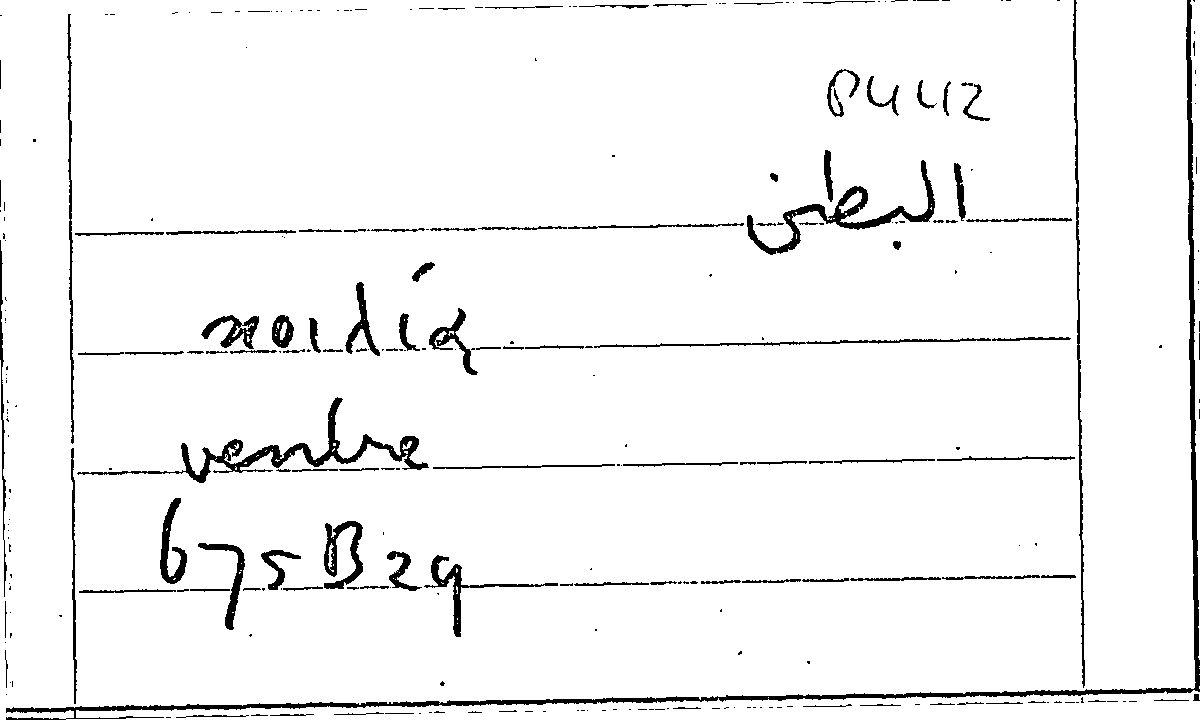 P442
البطن
κοιλία
ventre
675B29